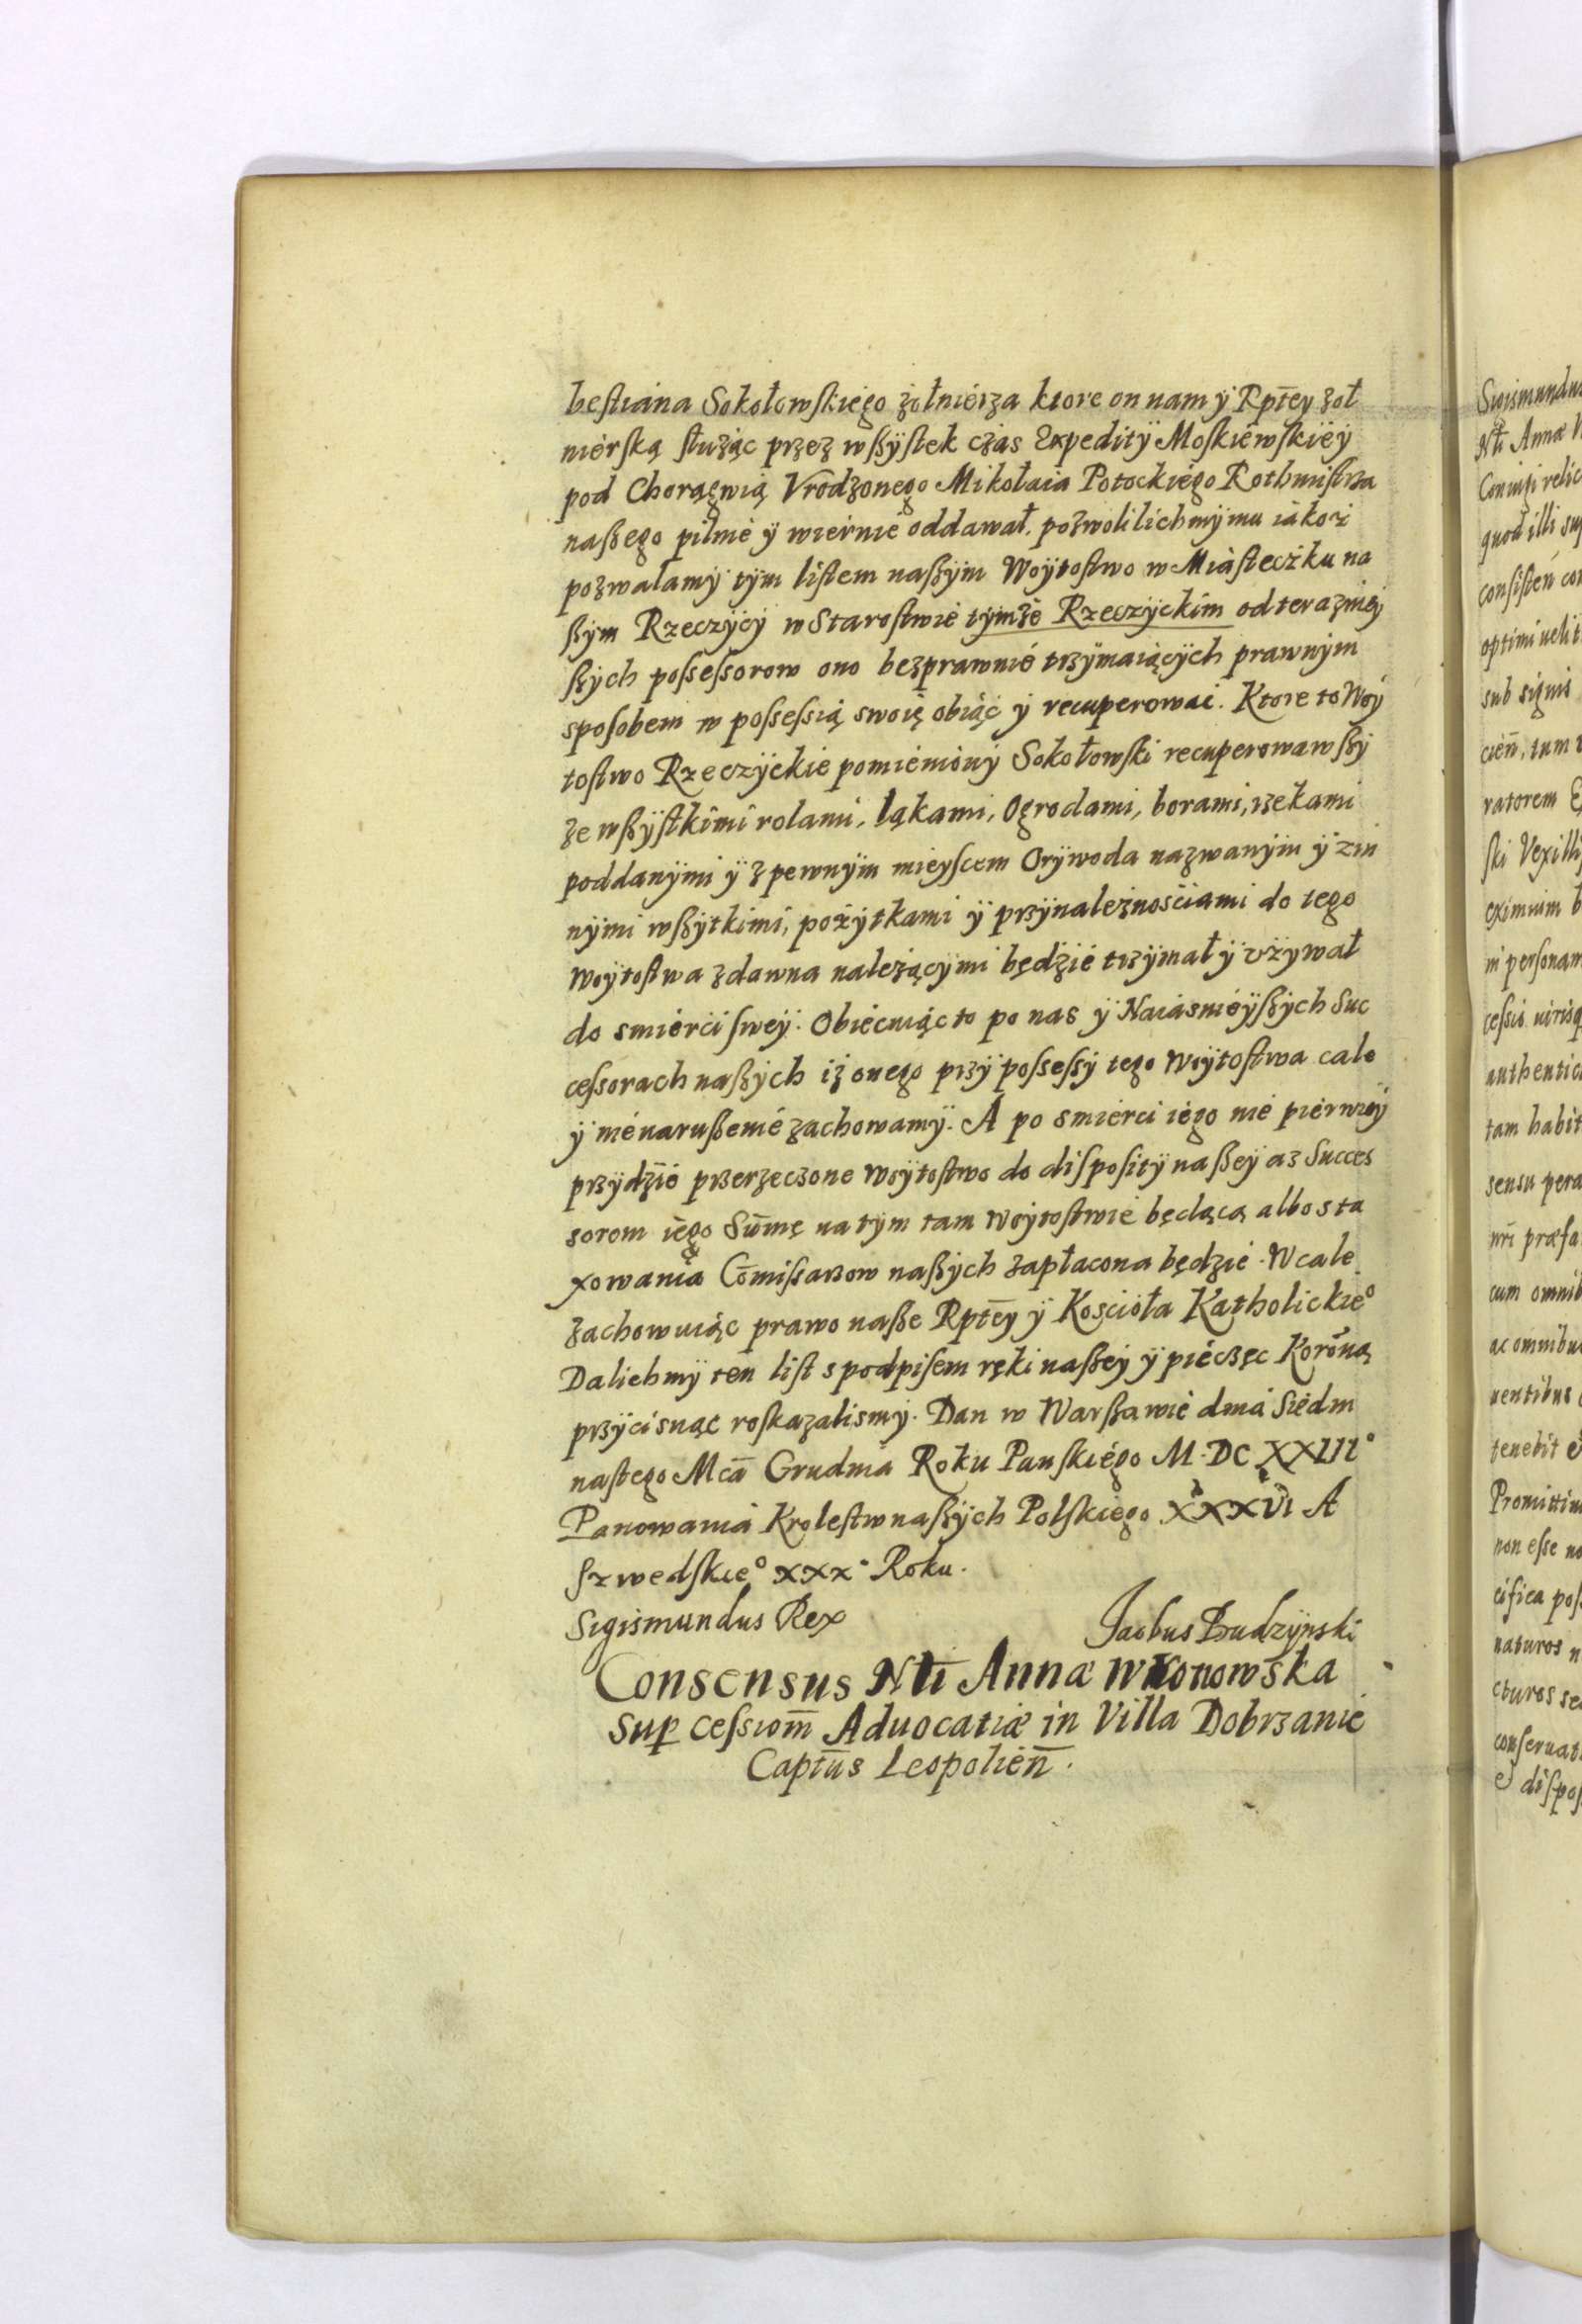 bestiana Sokołowskiego żołnierza ktore on nam ÿ Rptey żoł
nierską służąc przez wßÿstek czas Expeditÿ Moskiewskiëÿ
pod Chorągwią Vrodzonego Mikołaia Potockiégo Rothmistrza
naßego pilnie ÿ wiernie oddawał. pozwolilichmÿ mu iakoż
pozwalamÿ tÿm listem naßÿm Woÿtostwo w Miasteczku na
ßÿm Rzeczÿcÿ w Starostwie tÿmże Rzeczÿckim od terazniey
ßÿch possessorow ono bezprawnié trzÿmaiącÿch prawnÿm
sposobem w possessią swoię obiąć ÿ recuperować. Ktore to Woÿ
tostwo Rzeczÿckie pomienionÿ Sokołowski recuperowawßÿ
ze wßÿstkimi rolami, łąkami, Ogrodami, borami, rzekami
poddanÿmi ÿ z pewnÿm mieÿscem Orÿwoda nazwanÿm ÿ zin
nÿmi wßÿtkimi, pożÿtkami ÿ przÿnależnościami do tego
Woÿtostwa zdawna należącÿmi będzie trzÿmał ÿ vżÿwał
do smierci sweÿ. Obiecuiąc to po nas ÿ Naiasnieÿßÿch Suc
cessorach naßÿch iż onego przÿ possessÿ tego Woÿtostwa cale
ÿ nienarußenié zachowamÿ. A po smierci iego nie pierwieÿ
przÿdzié przerzeczone Woÿtostwo do dispositÿ naßeÿ az Succes
sorom iego Sūmę na tÿm tam Woÿtostwie będącą albo s ta
xowania Cōmissarzow naßÿch zapłacona będzie. W cale
zachowuiąc prawo naße Rptēÿ ÿ Kosciola Katholickie°
Dalichmÿ ten list s podpisem ręki naßeÿ ÿ pieczęc Korōną
przÿcisnąc roskazalismÿ. Dan w Warßawié dnia Siedm
nastego Mcā Grudnia Roku Panskiégo M·DC XXIII°
Panowania Krolestw naßÿch Polskiego XXXVI A
Szwedskie° XXX° Roku.
Sigismundus Rex
Jacobus Budzÿnski
Consensus Nti Annæ
Sup cessiom̄ Aduocatiæ in Villa Dobrzanie
Captūs Leopolien̄.